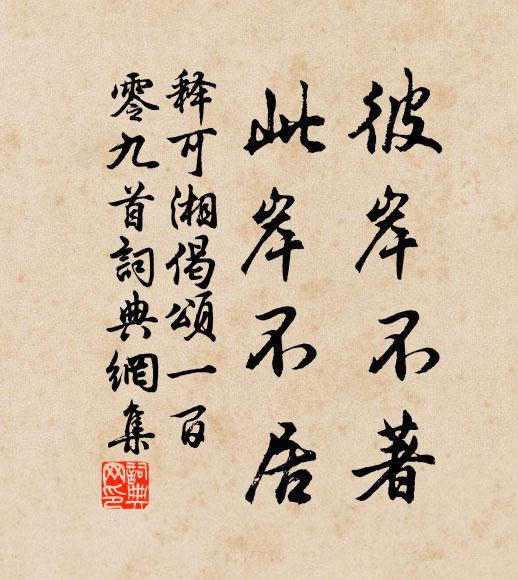 彼岸不著
此岸不居
释可湘偈頌一百
零九首詞典網集
詞典網印